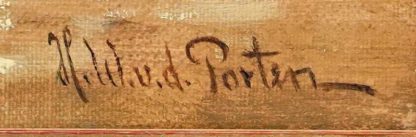 H.W.v.d. Porten